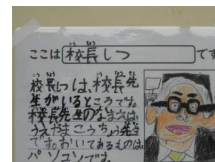 ここは 校長しつ です
校長しつは、校長先
生がいるところです。
校長先生のなまえは、
うえすぎこうちょう先生
です。おいてあるものは、
パソコンです。